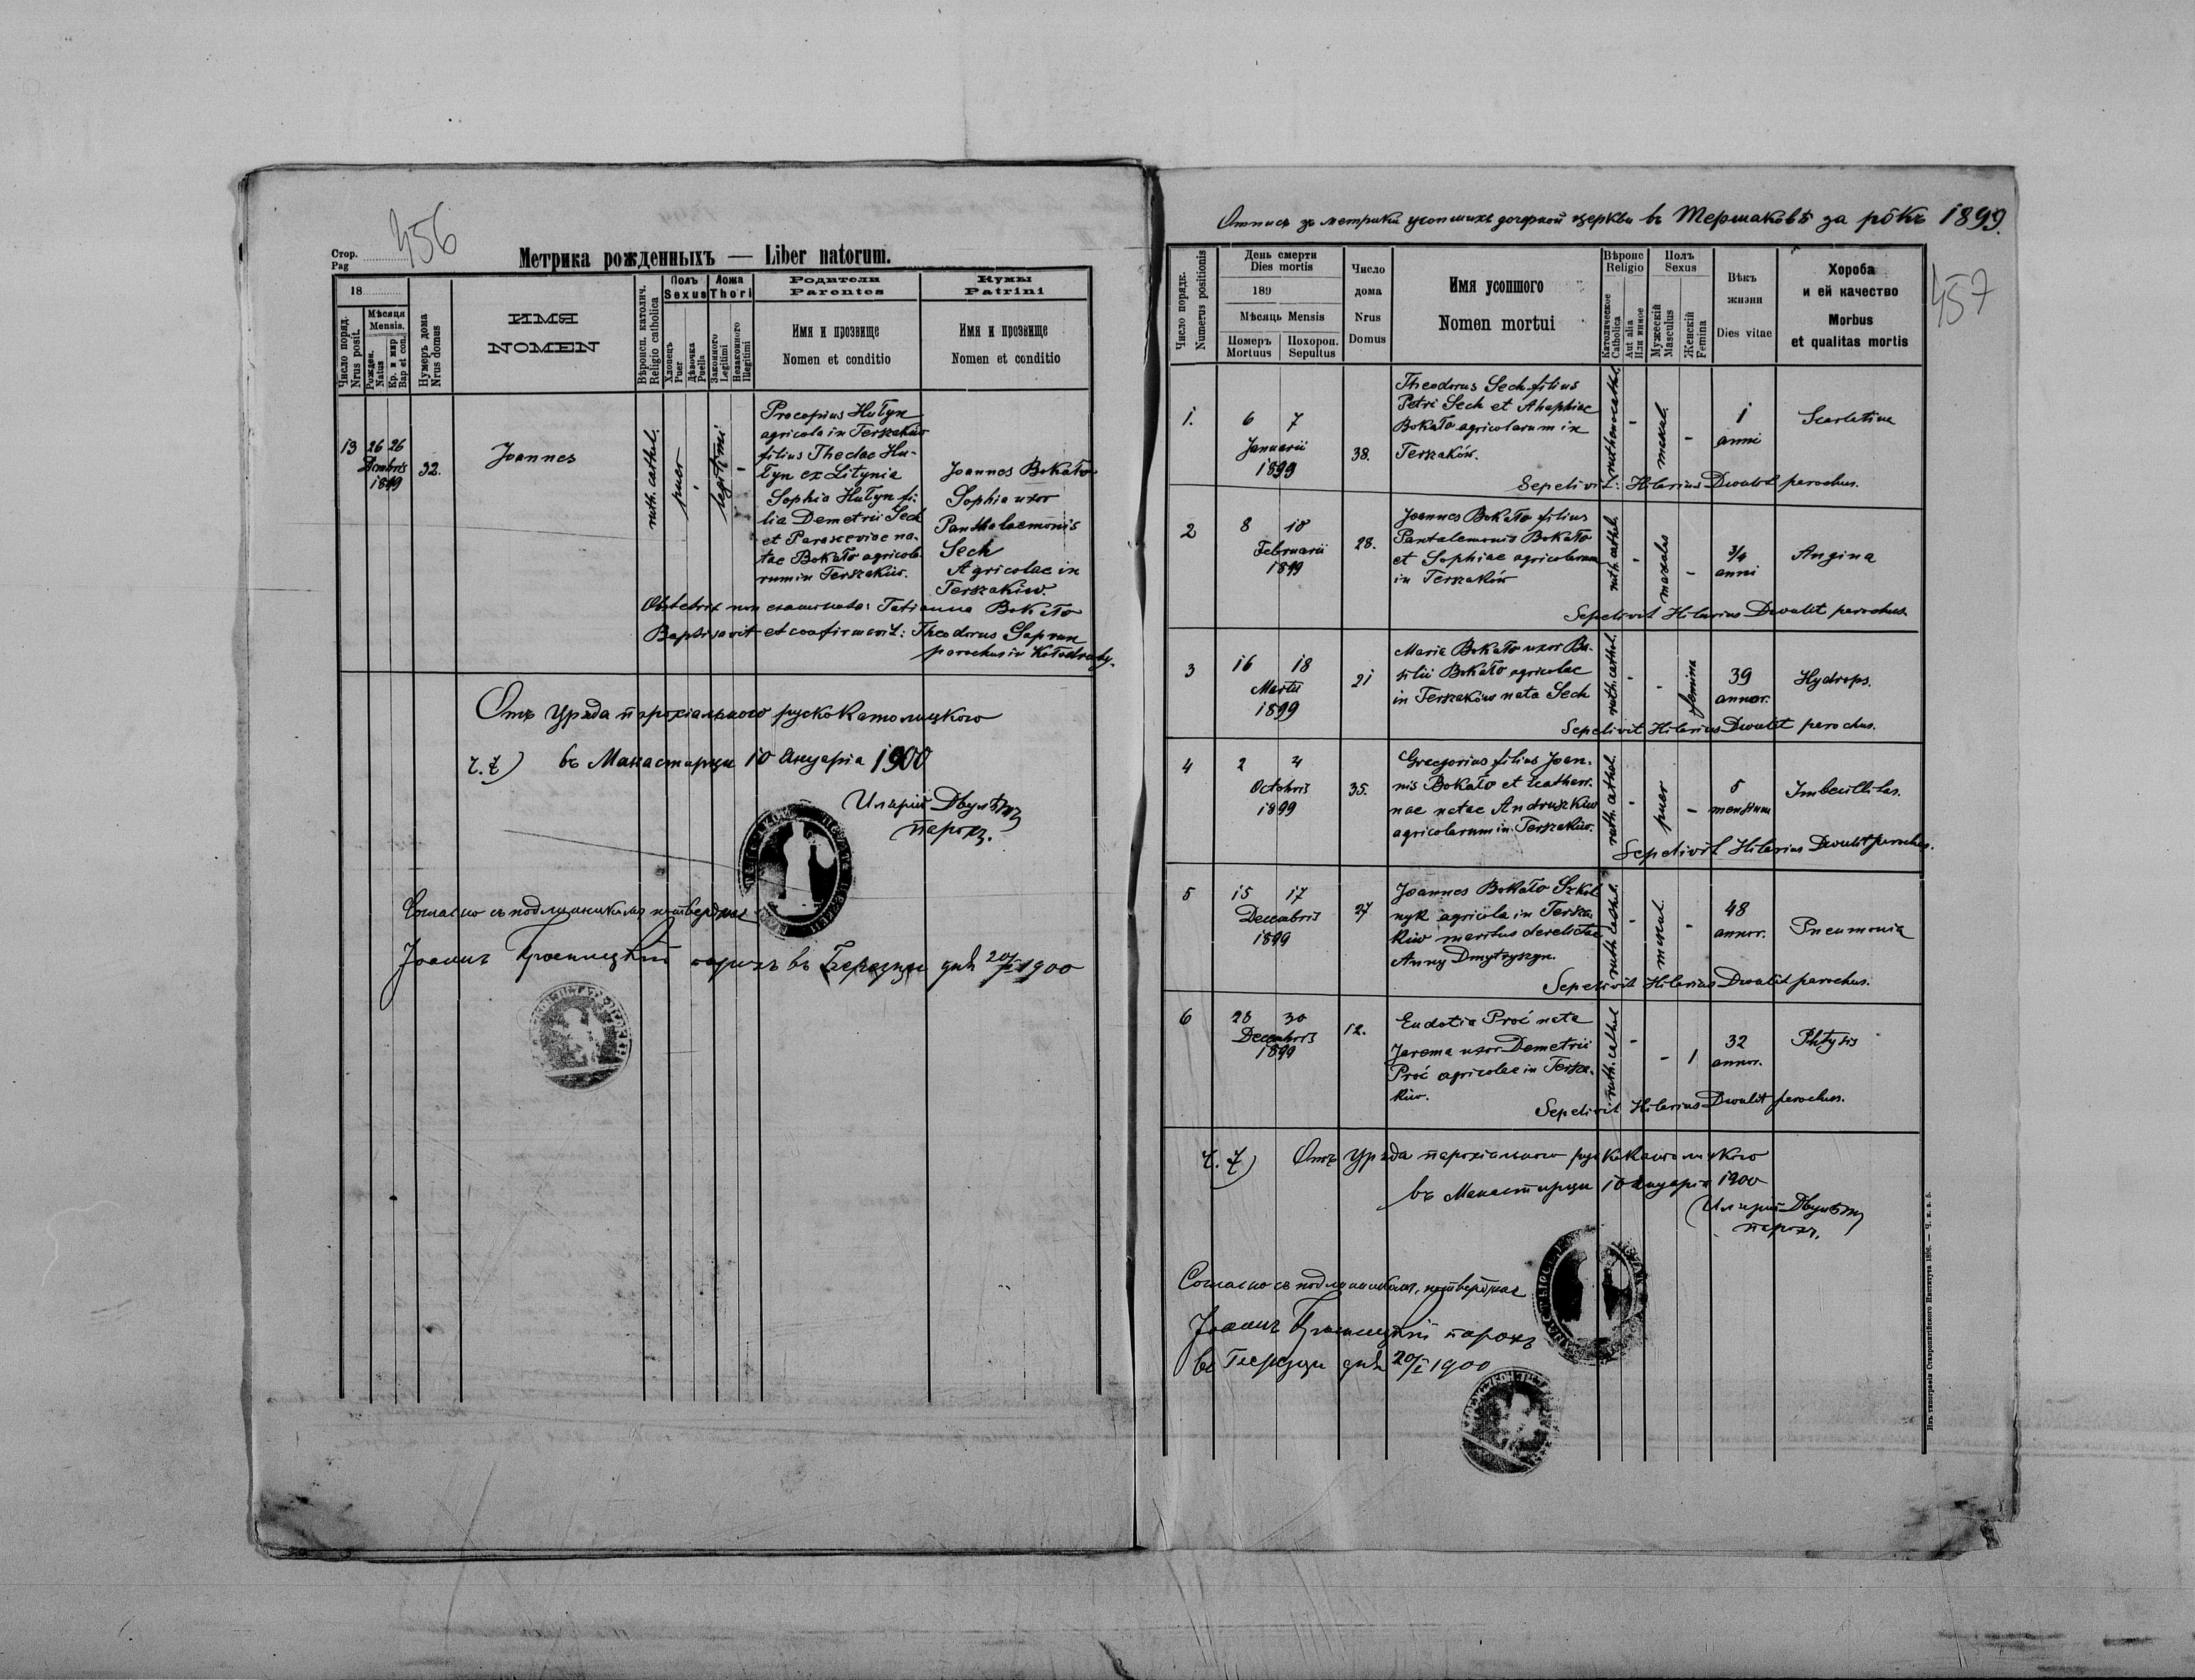 456
Стор.
Pag
Метрика рожденныхъ — Liber natorum.
18
Число поряд.
Nrus posit.
Мѣсяця
Mensis.
Рожден.
Natus
Кр. и мир
Bap et con.
Нумеръ дома
Nrus domus
ИМЯ
NOMEN
Вѣроисп. католич.
Religio catholica
Полъ
Sexus
Хлопець
Puer
Дѣвочка
Puella
Ложа
Thori
Законного
Legitimi
Незаконного
Illegitimi
Родители
Parentes
Имя и прозвище
Nomen et conditio
Кумы
Patrini
Имя и прозвище
Nomen et conditio
13
26 26
Dcmbris
1899
32.
Joannes
ruth. cathol.
puer
-
legitimi
-
Procopius Hułyn
agricola in Terszaków
filius Theclae Hu-
łyn ex Litynia
Sophia Hułyn fi-
lia Demetrii Sech
et Parasceviae na-
tae Bokało agricola-
rum in Terszaków.
Joannes Bokało
Sophia uxor
Panthalaemonis
Sech
Agricolae in
Terszaków.
Obstetrix non examinata: Tatianna Bokało
Baptisavit et confirmavit: Theodorus Saprun
parochus in Kołodruby.
Отъ Уряда парохіального рускокатолицкого
въ Манастирци 10 Януарія 1900
Иларій Двулѣтъ
парохъ.
Согласно съ подлинникомъ потверджае
Іоаннъ парохъ въ дня 20/I 1900
Отпись зъ метрики усопшихъ дочерной церкви въ Тершаковѣ за рôкъ 1899.
457
Число порядк.
Numerus positionis
День смерти
Dies mortis
189
Мѣсяць Mensis
Померъ
Mortuus
Похорон.
Sepultus
Число
дома
Nrus
Domus
Имя усопшого
Nomen mortui
Вѣроис
Religio
Католическое
Catholica
Aut alia
Или инное
Полъ
Sexus
Мужескій
Masculus
Женскій
Femina
Вѣкъ
жизни
Dies vitae
Хороба
и ей качество
Morbus
et qualitas mortis
1.
6 7
Januarii
1899
38.
Theodorus Sech filius
Petri Sech et Ahaphiae
Bokało agricolarum in
Terszaków.
-
mascul.
-
1
anni
Scarlatina
Sepelivit: Hilarius Dwulit parochus.
2
8 10
Februarii
1899
28.
Joannes Bokało filius
Pantalemonis Bokało
et Sophiae agricolarum
in Terszaków
ruth. cathol.
-
masculus
-
3/4
anni
Angina
Sepelivit Hilarius Dwulit parochus.
3
16 18
Martii
1899
21
Maria Bokało uxor Ba-
silii Bokało agricolae
in Terszaków nata Sech
ruth. cathol.
-
-
femina
39
annor.
Hydrops.
Sepelivit Hilarius Dwulit parochus.
4
2 4
Octobris
1899
35.
Gregorius filius Joan-
nis Bokało et Catheri-
nae natae Andruszków
agricolarum in Terszaków.
ruth. cathol.
-
puer
-
5
mensium
Imbecillitas.
Sepelivit Hilarius Dwulit parochus.
5
15 17
Decembris
1899
27
Joannes Bokało Szkol-
nyk agricola in Tersza-
ków maritus derelictae
Anny Dmytryszyn.
ruth. cathol.
-
mascul.
-
48
annor.
Pneumonia
Sepelivit Hilarius Dwulit parochus.
6
28 30
Decembris
1899
12.
Eudotia Proć nata
Jarema uxor Demetrii
Proć agricolae in Tersza-
ków.
ruth. cathol
-
-
1
32
annor.
Phtysis
Sepelivit Hilarius Dwulit parochus.
Отъ Уряда парохіального рускокатолицкого
въ Манастирци 10 Януарія 1900
Иларій Двулѣтъ
парохъ.
Согласно съ подлинникомъ, потверджае
Іоаннъ парохъ
въ дня 20/I 1900
Изъ типографіи Ставропигійского Института 1896. — Ч. к. в. 5.